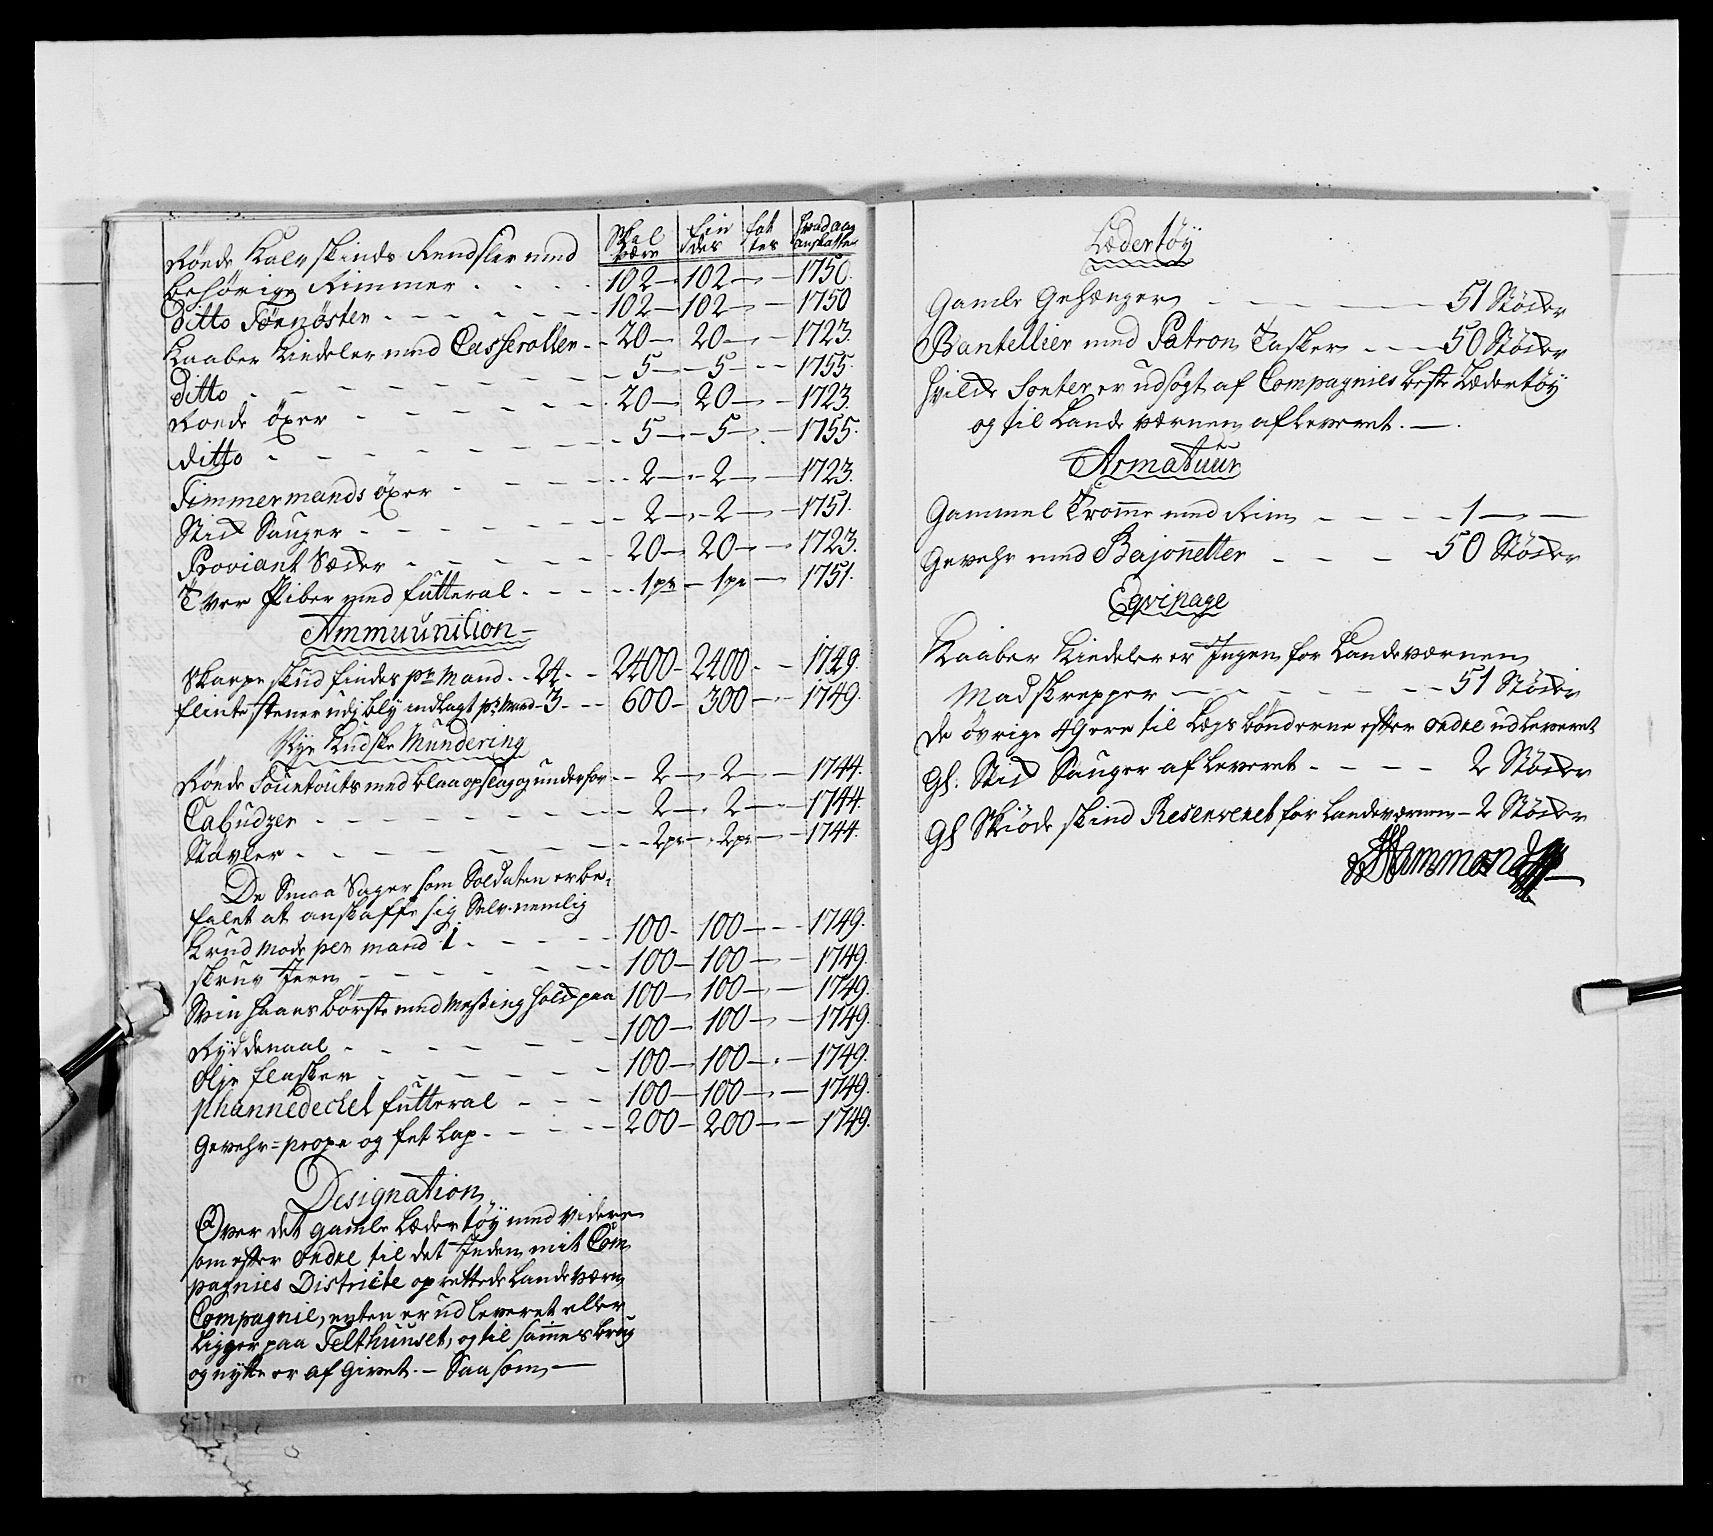 Skal være | Findes | Fattes | hvad aar anskattes
Røede Kalv skinds Rendsler med
behørige Rimmer - - - 102 - 102 - - 1750.
Ditto Tørnøster - - - - - - 102 - 102 - - 1750
Kaaber Kiedeler med Casseroller - - 20 - 20 - - 1723.
Ditto - - - - - - - - 5 - 5 - - 1755.
Røede öxer - - - - - - 20 - 20 - - 1723.
Ditto - - - - - - - 5 - 5 - - 1755.
Timmermands öxer - - - - - 2 - 2 - - 1723.
Stid Sauger - - - - - - 2 - 2 - - 1751.
Proviant Sæder - - - - - 20 - 20 - - 1723.
Tver Piber med futteral - - - - 1 pr - 1 pr - 1751.
Ammuunition
Skarpe skud findes pr Mand - - 24 - - 2400 - 2400 - - 1749.
flinte stener udj bly indlagt pr Mand - 3 - - 600 - 300 - - 1749.
Nye Kudske Mundering
Røede Sourtouts med blaa opslag og underfor - - 2 - 2 - - 1744.
Cabudzer - - - - - - - 2 - 2 - - 1744.
Støvler - - - - - - - 2 pr - 2 pr - - 1744.
De Smaa Sager som Soldaten er be-
falet at anskaffe sig Selv nemlig
Krud Maade per mand 1 - - - - 100 - 100 - - - 1749.
skruv Jern - - - - - - 100 - 100 - - 1749.
Svin haars børste med Messing hold paa 100 - 100 - - 1749.
Ryddenaal - - - - - - - 100 - 100 - - 1749.
Olje flasker - - - - - - 100 - 100 - - 1749.
phannedeckel futteral - - - 100 - 100 - - 1749.
Gevehr = prope og fet lap - - - - - 200 - 200 - - 1749.
Designation
Over det gamle Lædertøÿ med videre
som efter ordre til det Inden mit Com
pagnies Districte oprettede Landeværn
Compagnie, enten er udleveret eller
ligger paa Felthuuset, og til sammes brug
og nytte er afgivet. - Saasom -
Lædertöÿ
Gamle Gehænger - - - - - 51 Støcker
Bantellier med Patron Tasker - - - 50 Støcker
hvilcke Sorter er udsøgt af Compagnies beste Lædertøÿ
og til Landeværnen afleveret. -
Armatuur
Gammel Tromme med Rim - - - - 1 - -
Gevehr med Bajonetter - - - - 50 Støcker
Eqvipage
Kaaber Kiedeler er Ingen for Landeværnen
Madskrepper - - - - - - - 51 Støcker
De øvrige 49 ere til Legs bønderne efter ordre udleveret
Gl. Stid Sauger afleveret - - - - 2 Støcker
Gl Skiøde skind Reserveret for Landeværnen - 2 Støcker
Hammond